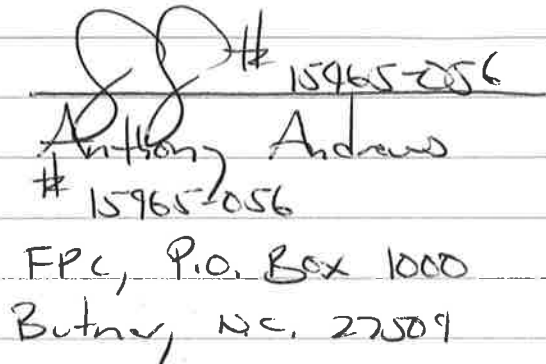 # 15965-056
Anthony Andrews
# 15965-056
FPC, P.O. Box 1000
Butner, NC. 27509